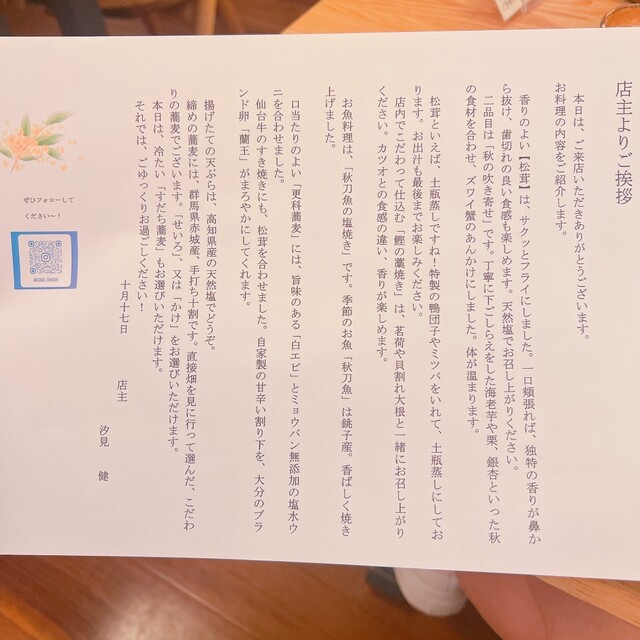 店主よりご挨拶
本日は、ご来店いただきありがとうございます。
お料理の内容をご紹介します。
香りのよい【松茸】は、サクッとフライにしました。一口頬張れば、独特の香りが鼻か
ら抜け、歯切れの良い食感も楽しめます。天然塩でお召し上がりください。
二品目は「秋の吹き寄せ」です。丁寧に下ごしらえをした海老芋や栗、銀杏といった秋
の食材を合わせ、ズワイ蟹のあんかけにしました。体が温まります。
松茸といえば、土瓶蒸しですね！特製の鴨団子やミツバをいれて、土瓶蒸しにしてお
ります。お出汁も最後までお楽しみください。
店内でこだわって仕込む「鰹の藁焼き」は、茗荷や貝割れ大根と一緒にお召し上がり
ください。カツオとの食感の違い、香りが楽しめます。
お魚料理は、「秋刀魚の塩焼き」です。季節のお魚「秋刀魚」は銚子産。香ばしく焼き
上げました。
口当たりのよい「更科蕎麦」には、旨味のある「白エビ」とミョウバン無添加の塩水ウ
ニを合わせました。
仙台牛のすき焼きにも、松茸を合わせました。自家製の甘辛い割り下を、大分のブラ
ンド卵「蘭王」がまろやかにしてくれます。
揚げたての天ぷらは、高知県産の天然塩でどうぞ。
締めの蕎麦には、群馬県赤城産、手打ち十割です。直接畑を見に行って選んだ、こだわ
りの蕎麦でございます。「せいろ」、又は「かけ」をお選びいただけます。
本日は、冷たい「すだち蕎麦」もお選びいただけます。
それでは、ごゆっくりお過ごしください！
十月十七日 店主
汐見 健
ぜひフォローして
ください〜！